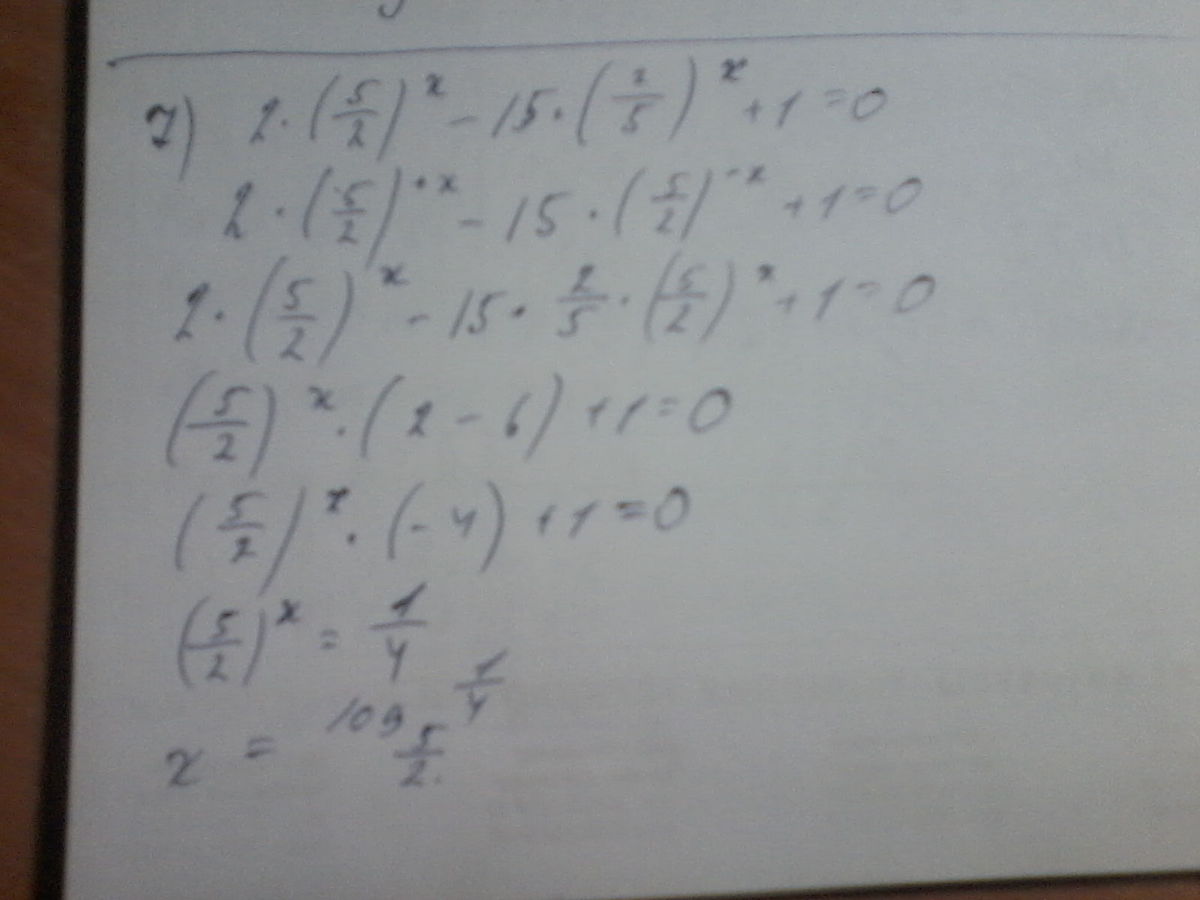 7) 2·(5/2)^x - 15·(2/5)^x + 1 = 0
2·(5/2)^x - 15·(5/2)^-x + 1 = 0
2·(5/2)^x - 15·2/5·(5/2)^x + 1 = 0
(5/2)^x·(2 - 6) + 1 = 0
(5/2)^x·(-4) + 1 = 0
(5/2)^x = 1/4
x = log_5/2 1/4